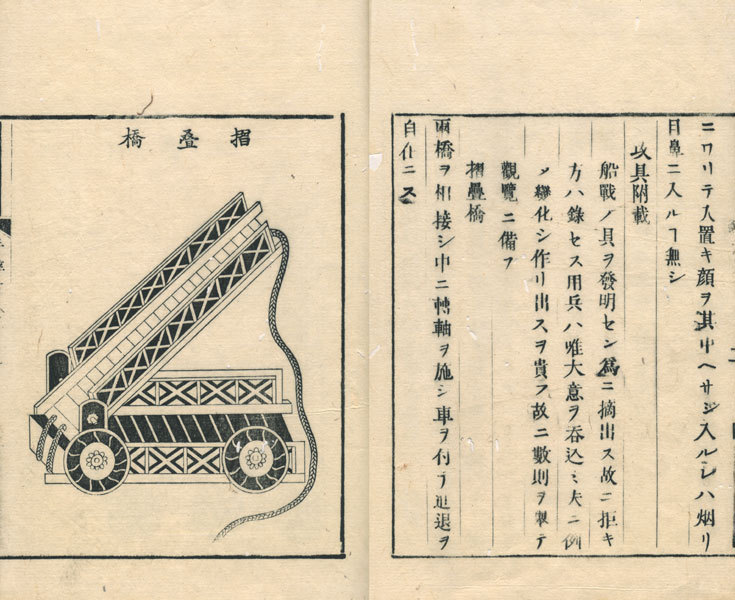 ニワリテ入置キ顔ヲ其中ヘサシ入ルレハ烟リ
目鼻ニ入ルヿ無シ
攻具附載
船戰ノ具ヲ發明セン爲ニ摘出ス故ニ拒キ
方ハ錄セス用兵ハ唯大意ヲ吞込ミ夫ニ例
メ變化シ作リ出スヲ貴フ故ニ數則ヲ製テ
觀覽ニ備フ
摺疊橋
兩橋ヲ相接シ中ニ轉軸ヲ施シ車ヲ付テ進退ヲ
自在ニス
摺疊橋